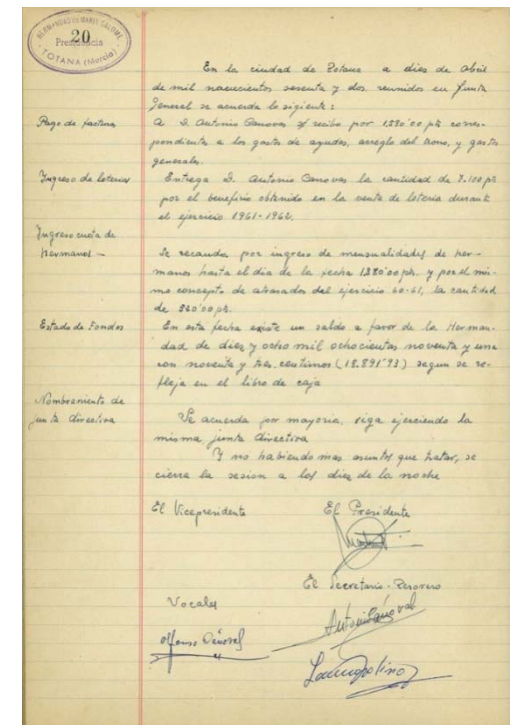 HERMANDAD DE MARIA SALOME
20
Presidencia
TOTANA (Murcia)
En la ciudad de Totana a dies de Abril
de mil novecientos sesenta y dos reunidos en Junta
General se acuerda lo sigiente:
Pago de factura
A D. Antonio Canovas s/ recibo por 1580'00 pts corres-
pondientes a los gastos de ayudas, arreglo del trono, y gastos
generales.
Ingreso de loteria
Entrega D. Antonio Canovas la cantidad de 7.100 pts
por el beneficio obtenido en la venta de loteria durante
el ejercicio 1961-1962.
Ingreso cuota de
hermanos -
Se recauda por ingreso de mensualidades de her-
manos hasta el dia de la fecha 1380'00 pts. y por el mis-
mo concepto de atrasados del ejercicio 60-61, la cantidad
de 380'00 pts.
Estado de Fondos
En esta fecha existe un saldo a favor de la Herman-
dad de diez y ocho mil ochocientas noventa y una
con noventa y tres centimos (18.891'93) segun se re-
fleja en el libro de caja
Nombramiento de
junta directiva
Se acuerda por mayoria, siga ejerciendo la
misma junta directiva
Y no habiendo mas asuntos que tratar, se
cierra la sesion a las diez de la noche
El Vicepresidente
El Presidente
El Secretario-Tesorero
Vocales
Antonio Cánovas
Alfonso Cánovas